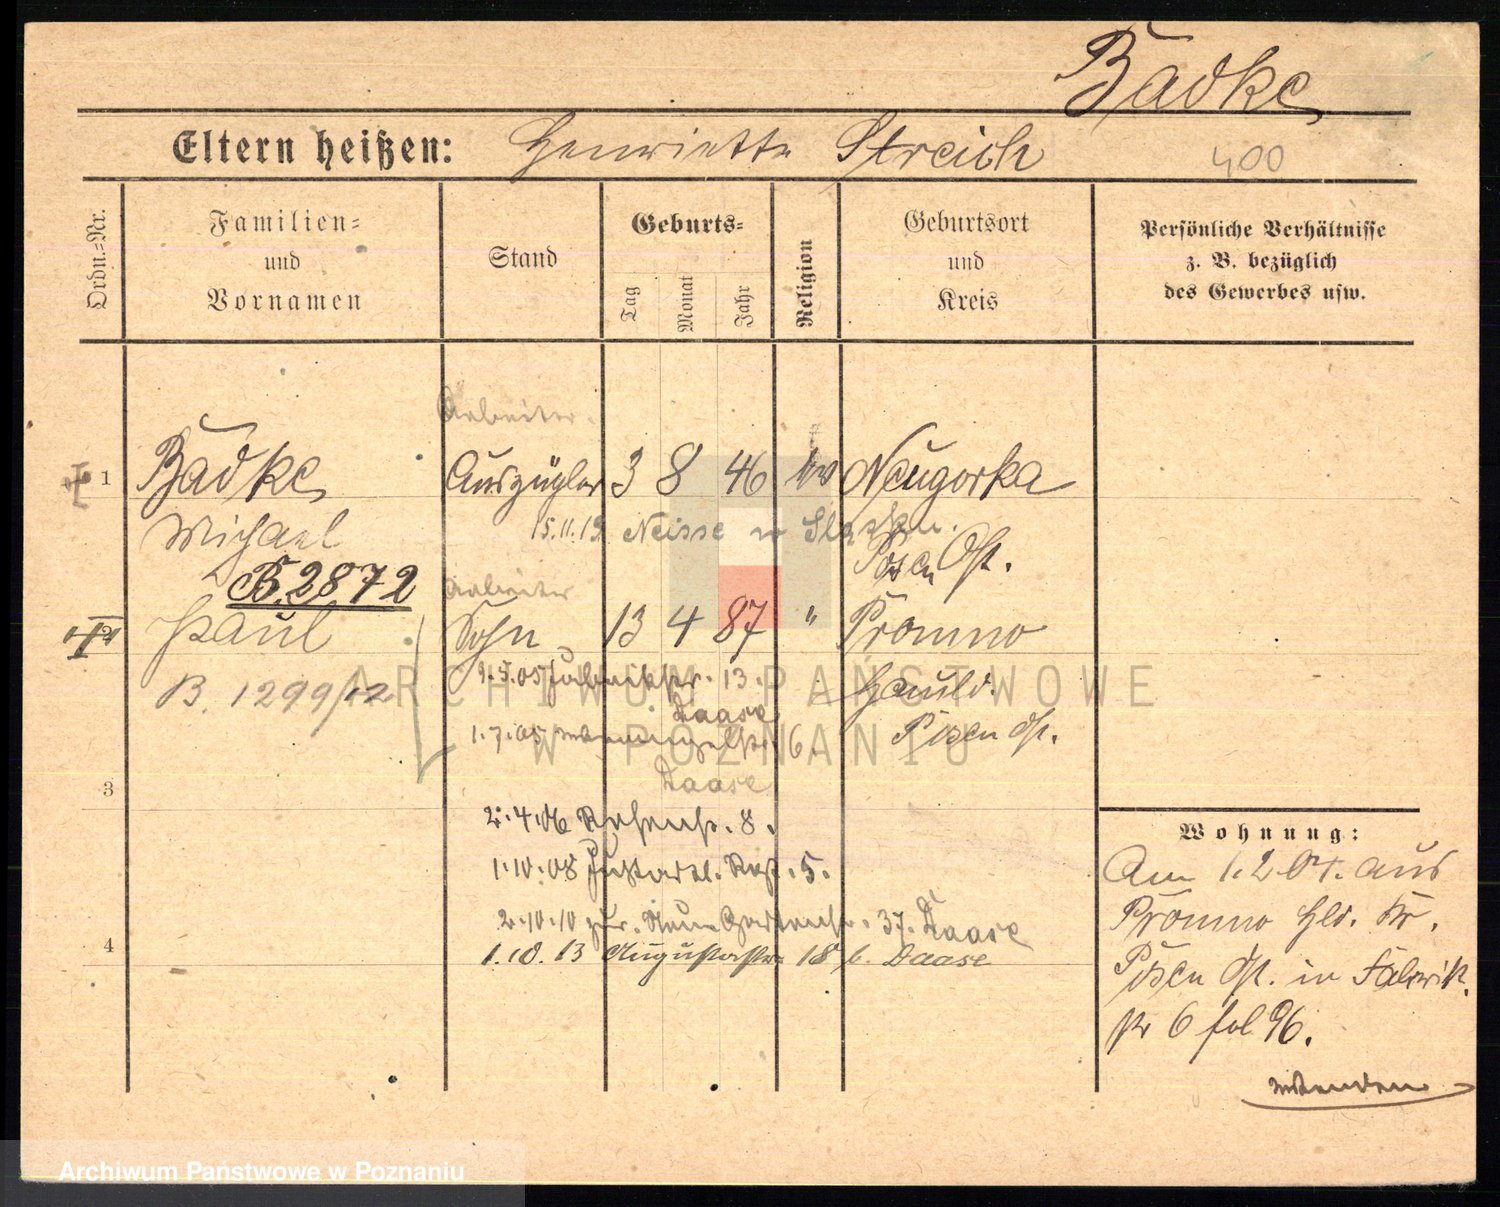 Badke
Eltern heißen: Henriette Streich
400
Ordn.-Nr.
Familien-
und
Vornamen
Stand
Geburts-
Tag
Monat
Jahr
Religion
Geburtsort
und
Kreis
Persönliche Verhältnisse
z. B. bezüglich
des Gewerbes usw.
Arbeiter.
1 Badke Auszügler 3 8 46 ev Neugorka
Michael 15.11.19 Neisse
Posen Ost.
B. 2872
Arbeiter
2 Paul Sohn 13 4 87 " Promno
B. 1299/12
9.5.05 Fabrikstr. 13.
Haase
Hauld.
Posen Ost.
1.7.05 6.
Haase
3
2.4.06 8.
1.10.08 5.
4
2.10.10 zur. Neue Gartenstr. 37. Haase
1.10.13 Augustastr. 18 b. Haase
Wohnung:
Am 1.2.04. aus
Promno Hld. Kr.
Posen Ost. in Fabrik
str 6 fol 96.
ARCHIWUM PAŃSTWOWE
W POZNANIU
Archiwum Państwowe w Poznaniu